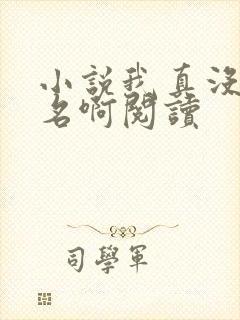 小說我真沒
名啊閱讀
司學軍